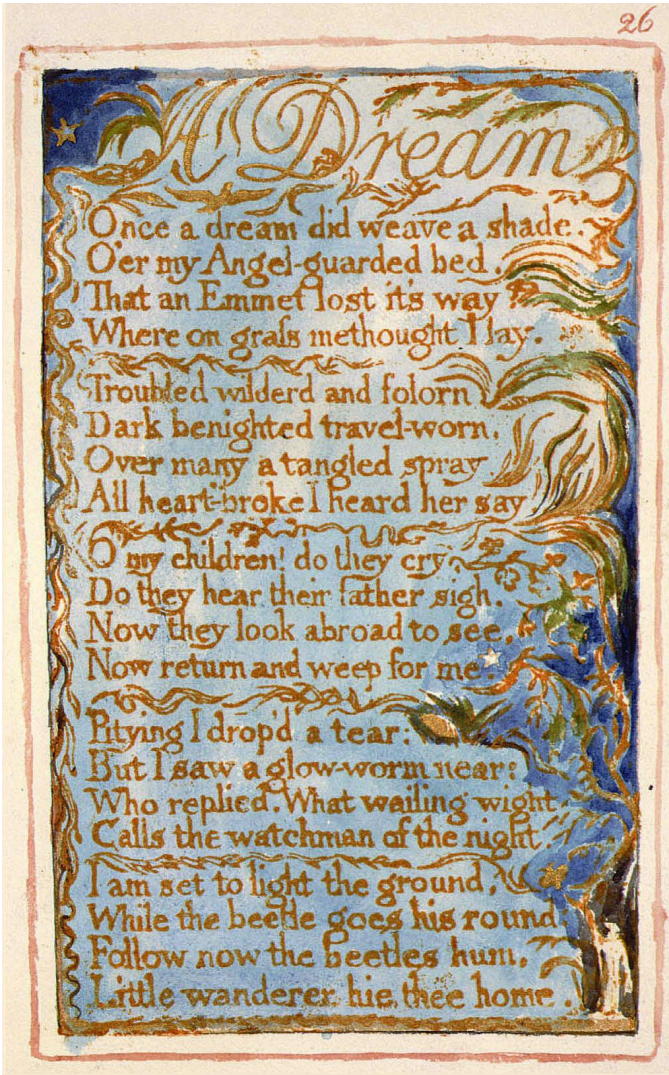 26
A Dream
Once a dream did weave a shade.
O'er my Angel-guarded bed.
That an Emmet lost it's way
Where on grafs methought I lay.
Troubled wilderd and folorn
Dark benighted travel-worn.
Over many a tangled spray
All heart-broke I heard her say
O my children! do they cry
Do they hear their father sigh.
Now they look abroad to see.
Now return and weep for me.
Pitying I drop'd a tear:
But I saw a glow-worm near:
Who replied. What wailing wight
Calls the watchman of the night.
I am set to light the ground,
While the beetle goes his round:
Follow now the beetles hum.
Little wanderer hie thee home.